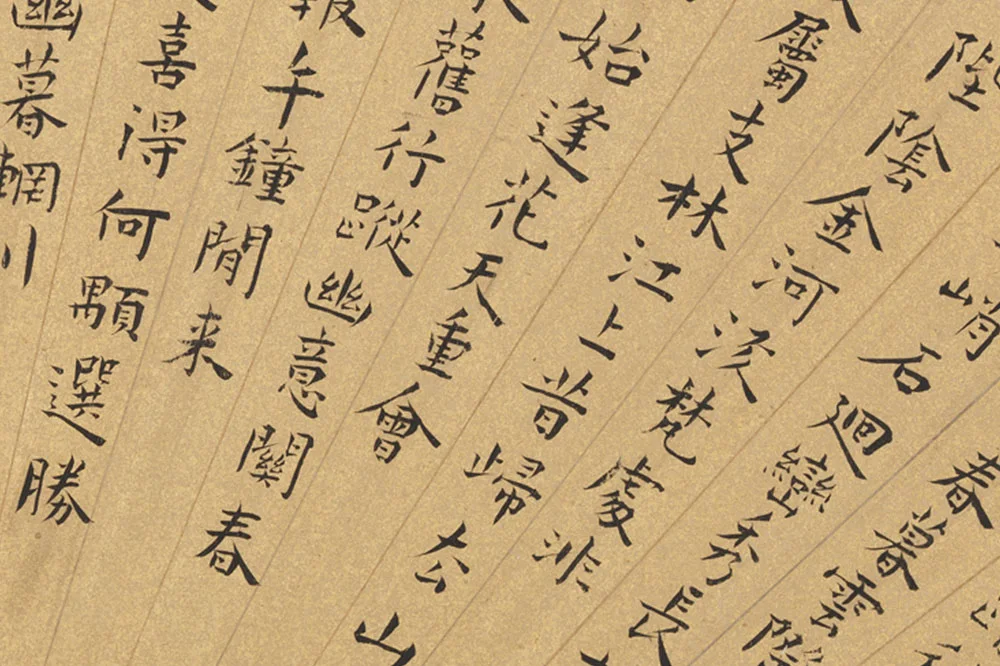 春暮雲陰
峭石廻巒秀長
陰金河梵處非
屬支林江上昔歸去山
始逢花天重會
舊行蹤幽意關春
報千鐘閒来
喜得何顒選勝
幽暮輞川